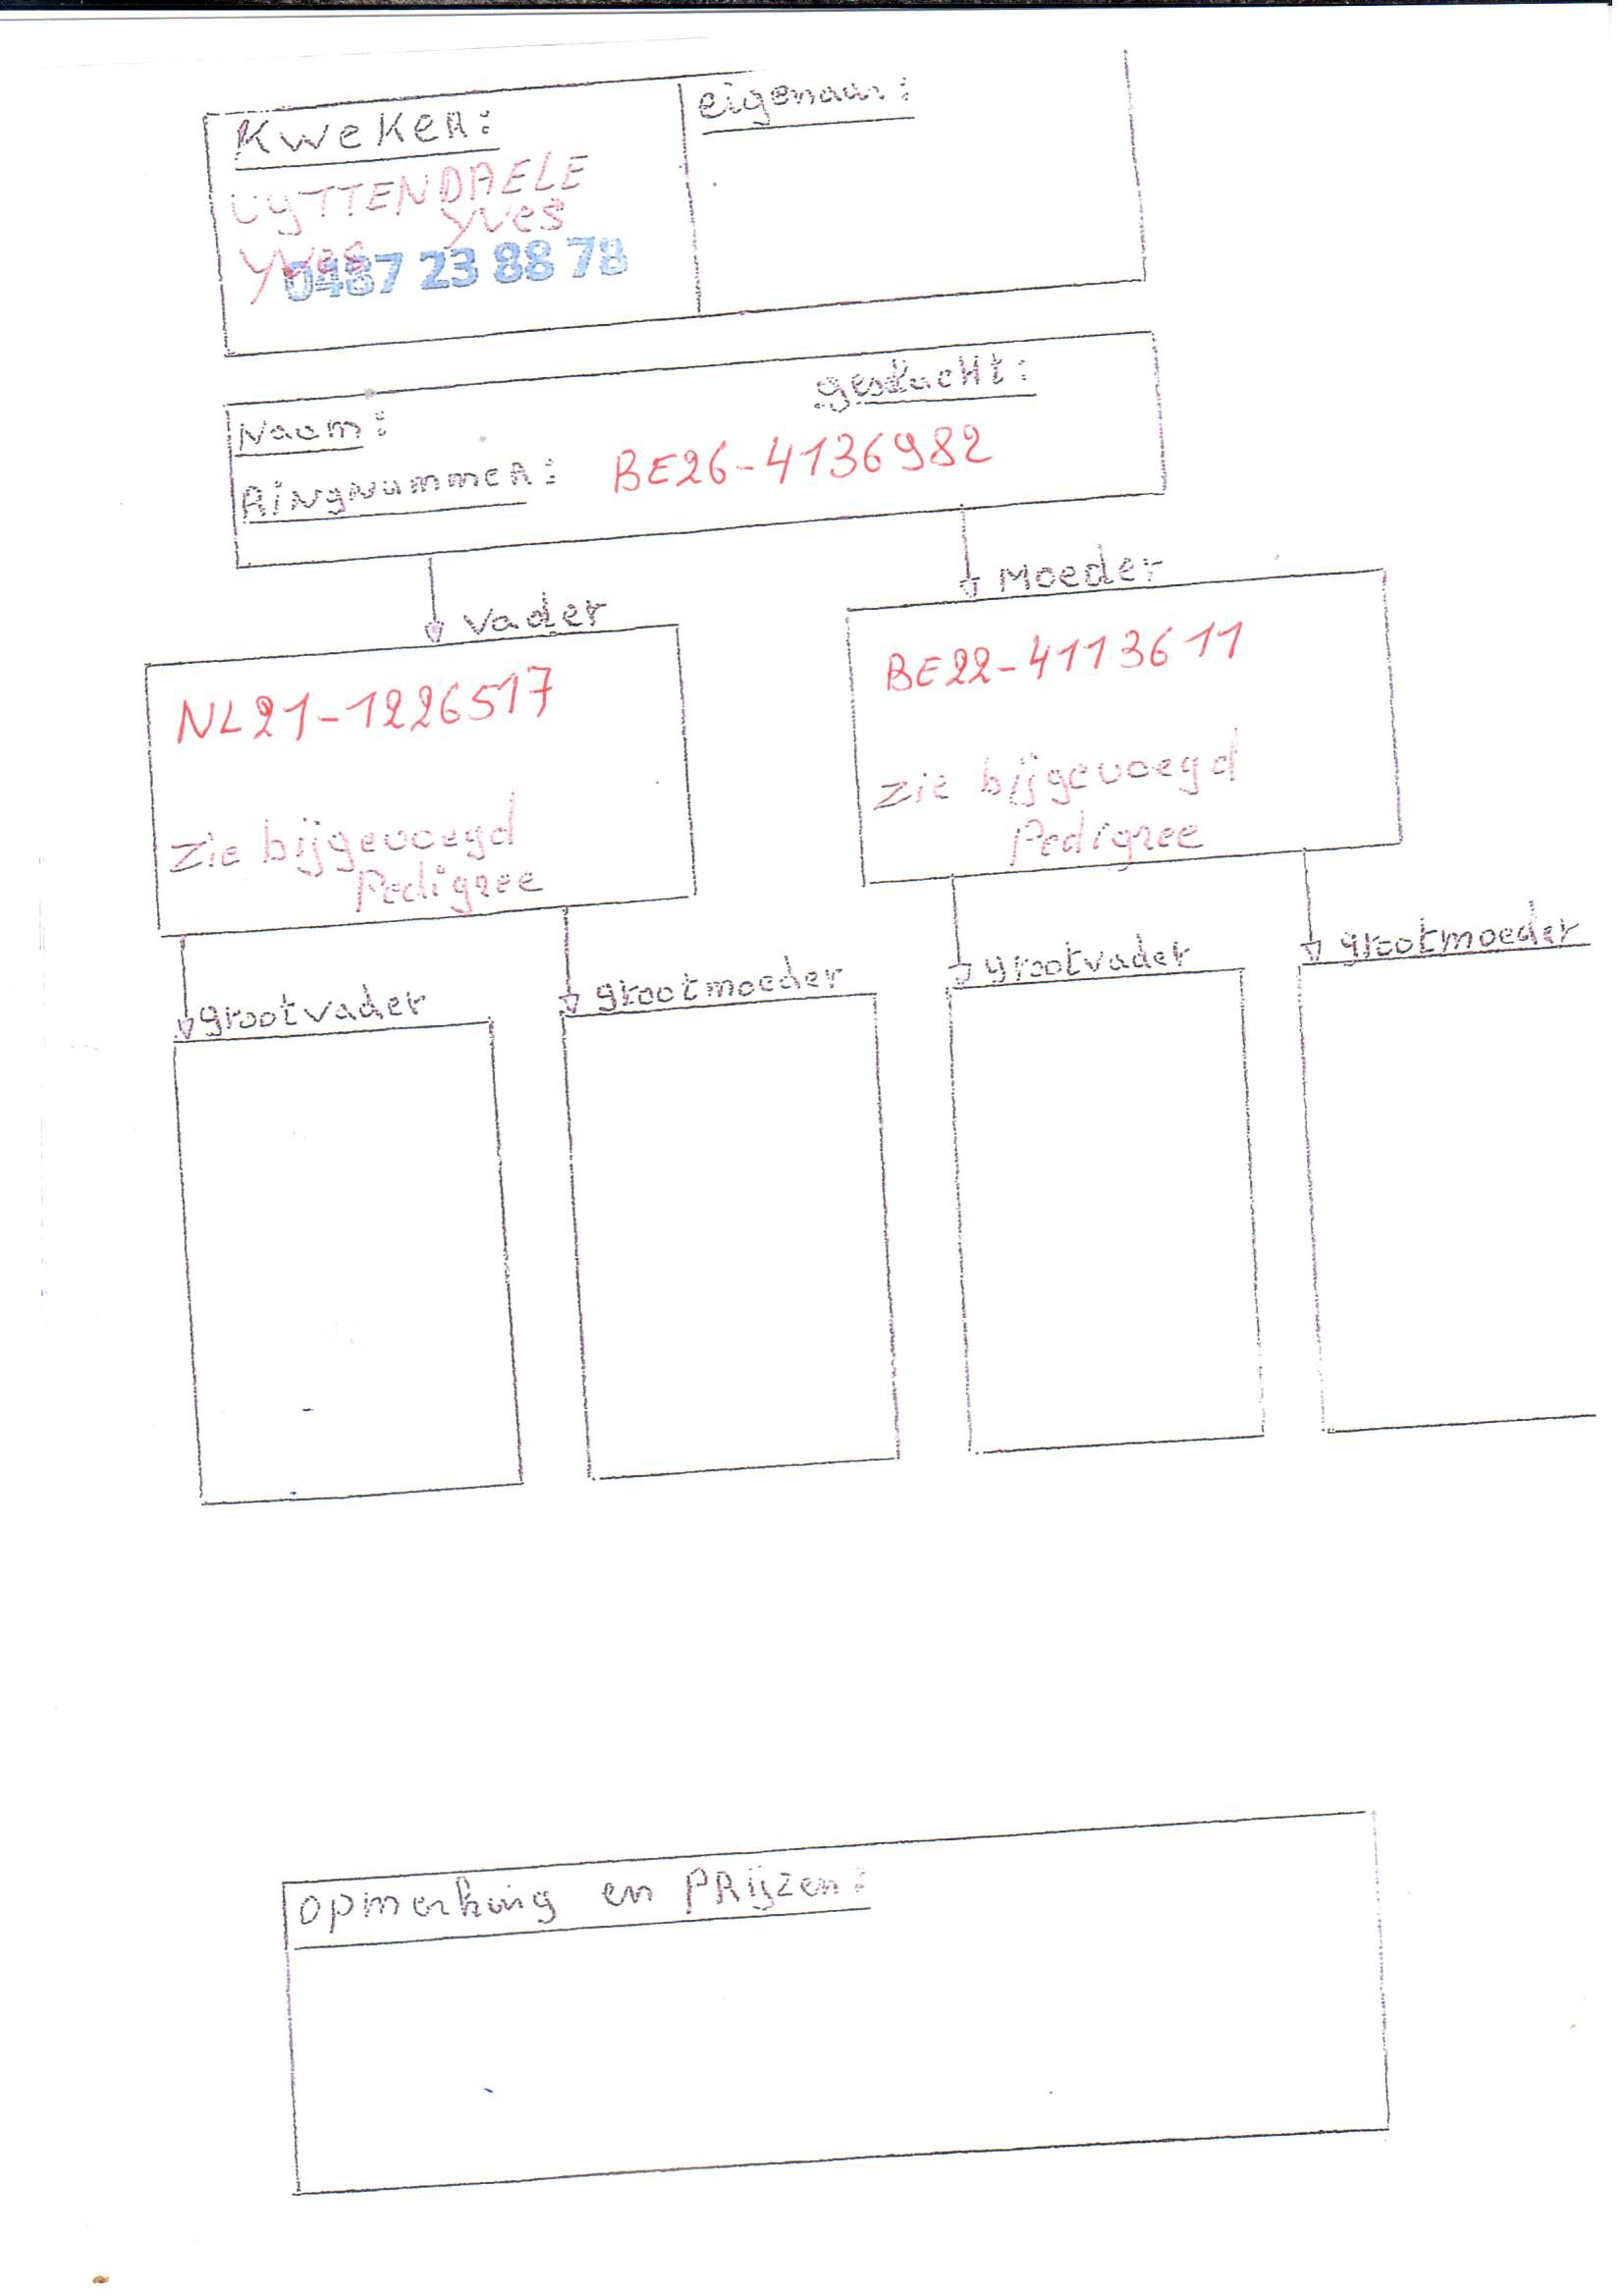 Kweker:
eigenaar:
UYTTENDAELE
Yves
Yves
0487 23 88 78
geslacht:
Naam:
Ringnummer: BE26-4136982
Moeder
Vader
BE22-4113611
NL21-1226517
Zie bijgevoegd
Pedigree
Zie bijgevoegd
Pedigree
grootvader
grootmoeder
grootvader
grootmoeder
opmerking en PRijzen: